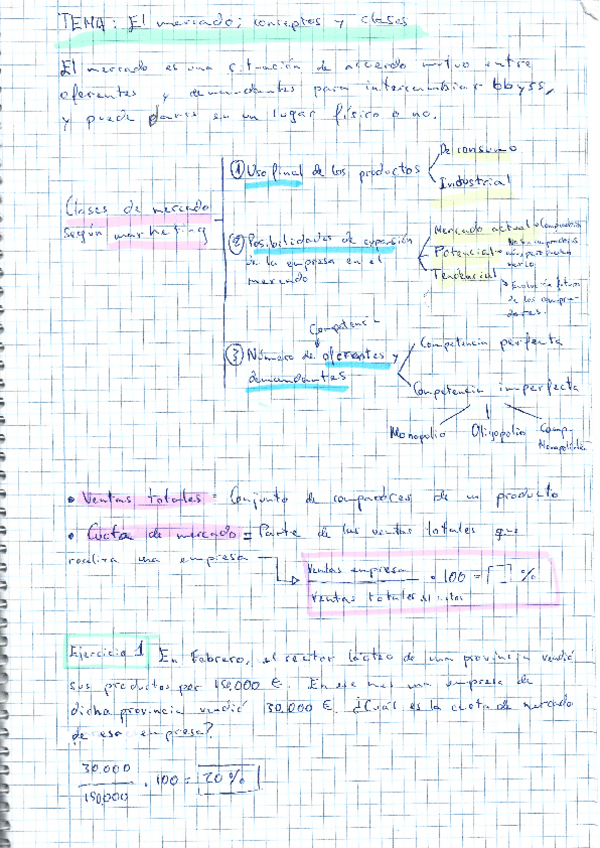 TEMA: El mercado; conceptos y clases
El mercado es una situación de acuerdo mutuo entre
oferentes y demandantes para intercambiar bbyss,
y puede darse en un lugar físico o no.
Clases de mercado
según marketing
① Uso final de los productos
De consumo
Industrial
② Posibilidades de expansión
de la empresa en el
mercado
Mercado actual
Potencial
Tendencial
Evolución futura
de los compra-
dores.
Competencia
③ Número de oferentes y
demandantes
Competencia perfecta
Competencia imperfecta
Monopolio Oligopolio Comp. Monopolística
• Ventas totales = Conjunto de compradores de un producto
• Cuota de mercado = Parte de las ventas totales que
realiza una empresa
Ventas empresa
Ventas totales
· 100 = [ ] %
Ejercicio 1 En Febrero, el sector lácteo de una provincia vendió
sus productos por 150,000 €. En ese mes una empresa de
dicha provincia vendió 30.000 €. ¿Cuál es la cuota de mercado
de esa empresa?
30.000
150,000
· 100 = 20 %